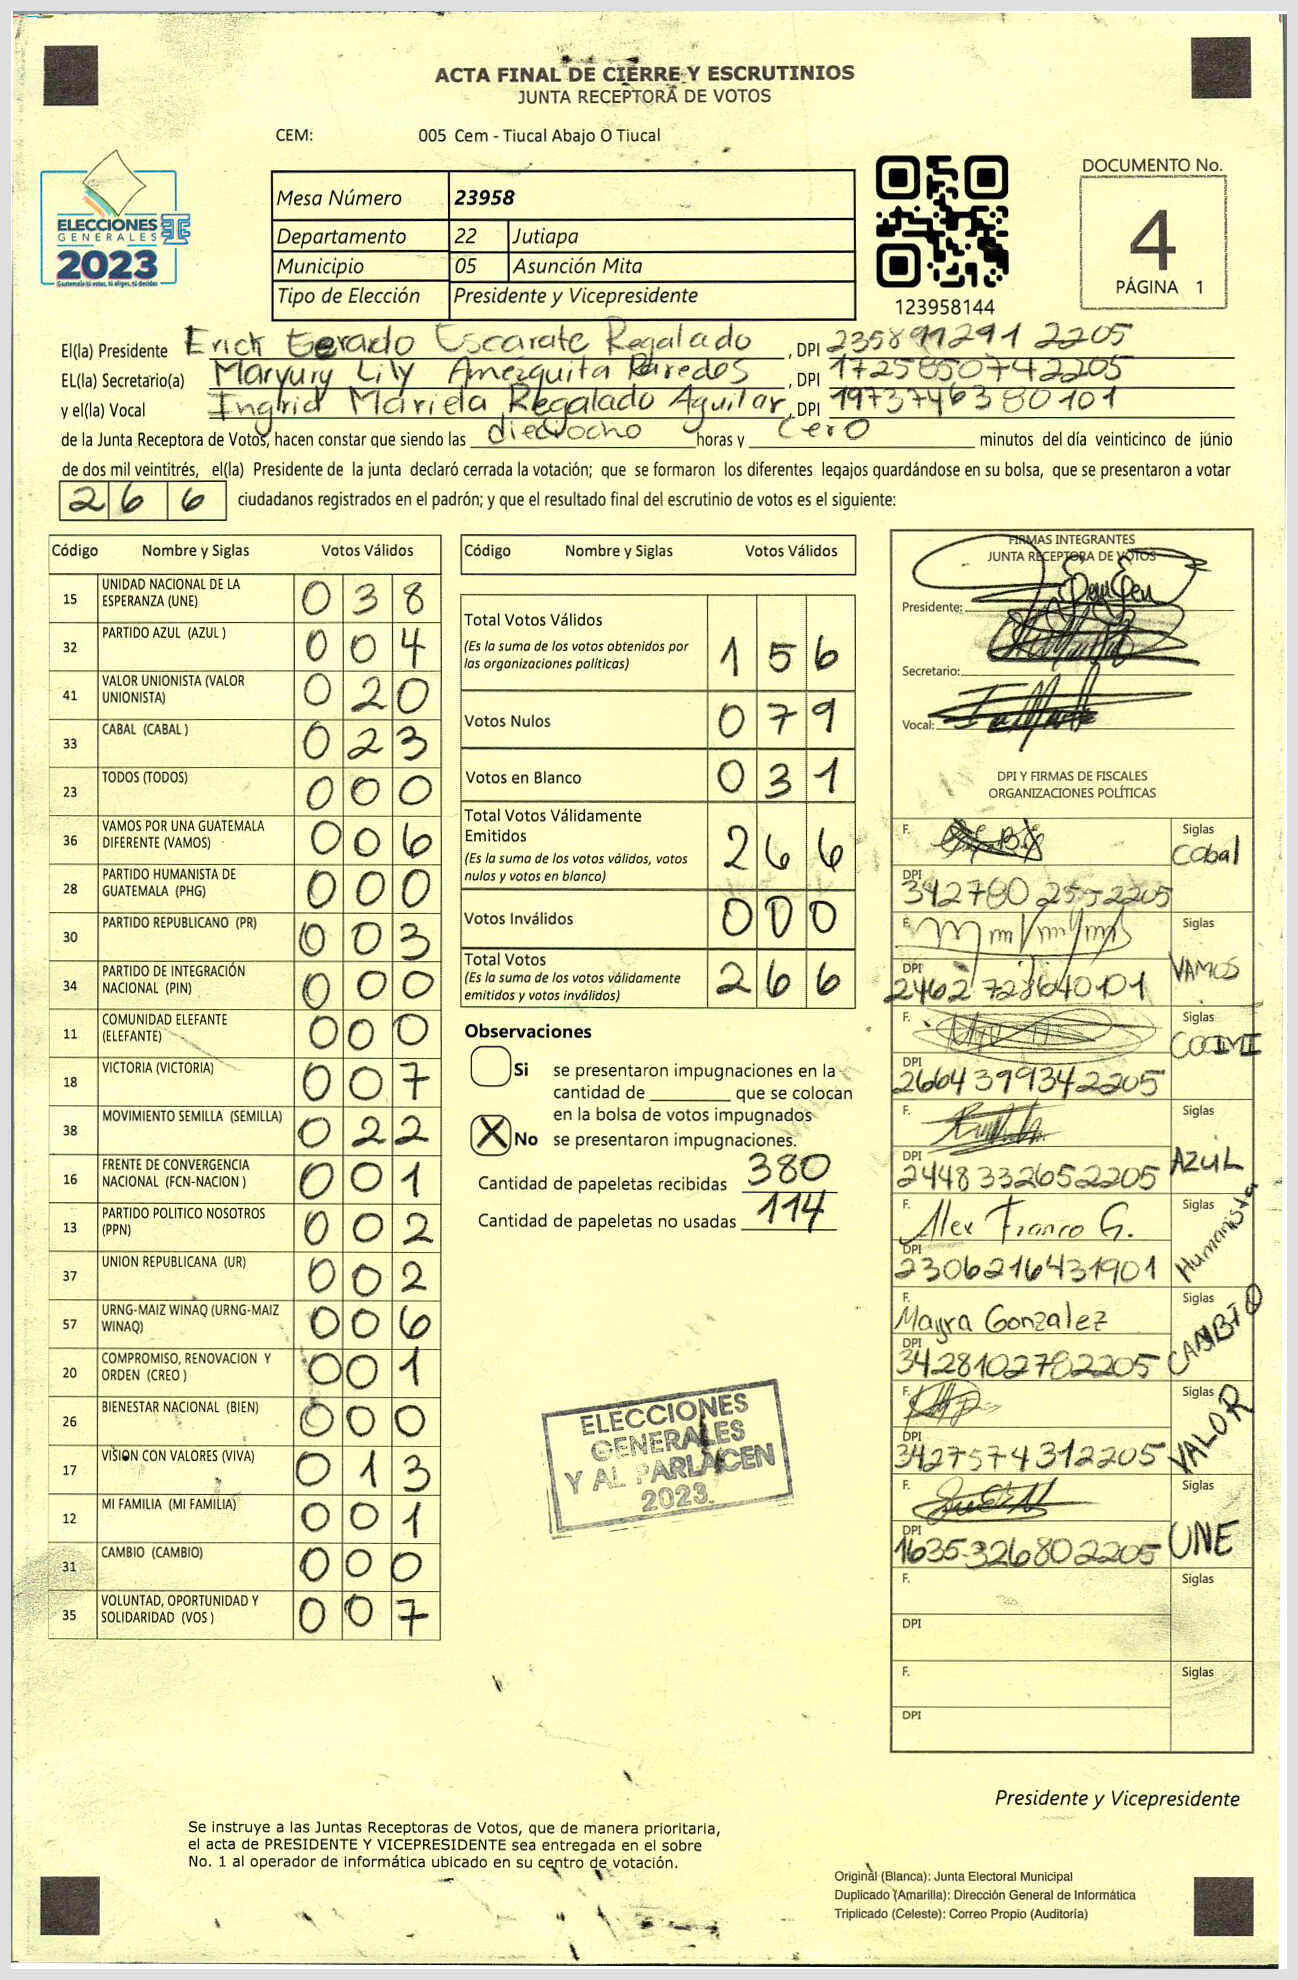 ACTA FINAL DE CIERRE Y ESCRUTINIOS
JUNTA RECEPTORA DE VOTOS
CEM: 005 Cem - Tiucal Abajo O Tiucal
ELECCIONES
GENERALES
2023
Guatemala tú votas, tú eliges, tú decides
Mesa Número 23958
Departamento 22 Jutiapa
Municipio 05 Asunción Mita
Tipo de Elección Presidente y Vicepresidente
123958144
DOCUMENTO No.
4
PÁGINA 1
El(la) Presidente Erick Gerado Escarate Regalado, DPI 235899291 2205
EL(la) Secretario(a) Maryury Lily Amezquita Paredes, DPI 1725850742205
y el(la) Vocal Ingrid Mariela Regalado Aguilar, DPI 1973746380101
de la Junta Receptora de Votos, hacen constar que siendo las dieciocho horas y cero minutos del día veinticinco de júnio
de dos mil veintitrés, el(la) Presidente de la junta declaró cerrada la votación; que se formaron los diferentes legajos guardándose en su bolsa, que se presentaron a votar
266 ciudadanos registrados en el padrón; y que el resultado final del escrutinio de votos es el siguiente:
Código Nombre y Siglas Votos Válidos
15 UNIDAD NACIONAL DE LA ESPERANZA (UNE) 038
32 PARTIDO AZUL (AZUL ) 004
41 VALOR UNIONISTA (VALOR UNIONISTA) 020
33 CABAL (CABAL ) 023
23 TODOS (TODOS) 000
36 VAMOS POR UNA GUATEMALA DIFERENTE (VAMOS) 006
28 PARTIDO HUMANISTA DE GUATEMALA (PHG) 000
30 PARTIDO REPUBLICANO (PR) 003
34 PARTIDO DE INTEGRACIÓN NACIONAL (PIN) 000
11 COMUNIDAD ELEFANTE (ELEFANTE) 000
18 VICTORIA (VICTORIA) 007
38 MOVIMIENTO SEMILLA (SEMILLA) 022
16 FRENTE DE CONVERGENCIA NACIONAL (FCN-NACION ) 001
13 PARTIDO POLITICO NOSOTROS (PPN) 002
37 UNION REPUBLICANA (UR) 002
57 URNG-MAIZ WINAQ (URNG-MAIZ WINAQ) 006
20 COMPROMISO, RENOVACION Y ORDEN (CREO ) 001
26 BIENESTAR NACIONAL (BIEN) 000
17 VISION CON VALORES (VIVA) 013
12 MI FAMILIA (MI FAMILIA) 001
31 CAMBIO (CAMBIO) 000
35 VOLUNTAD, OPORTUNIDAD Y SOLIDARIDAD (VOS ) 007
Código Nombre y Siglas Votos Válidos
Total Votos Válidos 156
(Es la suma de los votos obtenidos por
las organizaciones politicas)
Votos Nulos 079
Votos en Blanco 031
Total Votos Válidamente
Emitidos 266
(Es la suma de los votos válidos, votos
nulos y votos en blanco)
Votos Inválidos 000
Total Votos 266
(Es la suma de los votos válidamente
emitidos y votos inválidos)
Observaciones
Si se presentaron impugnaciones en la
cantidad de ________ que se colocan
en la bolsa de votos impugnados
X No se presentaron impugnaciones.
Cantidad de papeletas recibidas 380
Cantidad de papeletas no usadas 114
ELECCIONES
GENERALES
Y AL PARLACEN
2023
FIRMAS INTEGRANTES
JUNTA RECEPTORA DE VOTOS
Presidente:
Secretario:
Vocal:
DPI Y FIRMAS DE FISCALES
ORGANIZACIONES POLÍTICAS
F. Siglas Cabal
DPI 342780 2552205
F. Siglas VAMOS
DPI 2462 728640101
F. Siglas
DPI 2664399342205
F. Siglas AZUL
DPI 2448332652205
F. Alex Franco G. Siglas Humanista
DPI 2306216431901
F. Mayra Gonzalez Siglas CAMBIO
DPI 3428102782205
F. Siglas VALOR
DPI 3427574312205
F. Siglas UNE
DPI 1635326802205
F. Siglas
DPI
F. Siglas
DPI
Presidente y Vicepresidente
Se instruye a las Juntas Receptoras de Votos, que de manera prioritaria,
el acta de PRESIDENTE Y VICEPRESIDENTE sea entregada en el sobre
No. 1 al operador de informática ubicado en su centro de votación.
Original (Blanca): Junta Electoral Municipal
Duplicado (Amarilla): Dirección General de Informática
Triplicado (Celeste): Correo Propio (Auditoría)